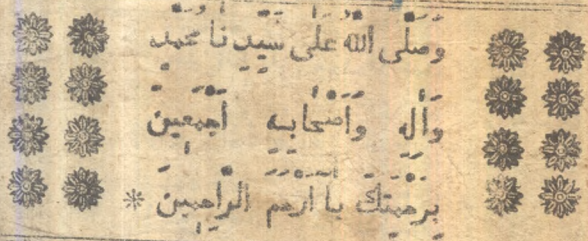 وَصَلَّى اللهُ عَلَى سَيِّدِنَا مُحَمَّدٍ
وَآلِهِ وَاَصْحَابِهِ أَجْمَعِينَ
بِرَحْمَتِكَ يَا اَرْحَمَ الرَّاحِمِينَ *